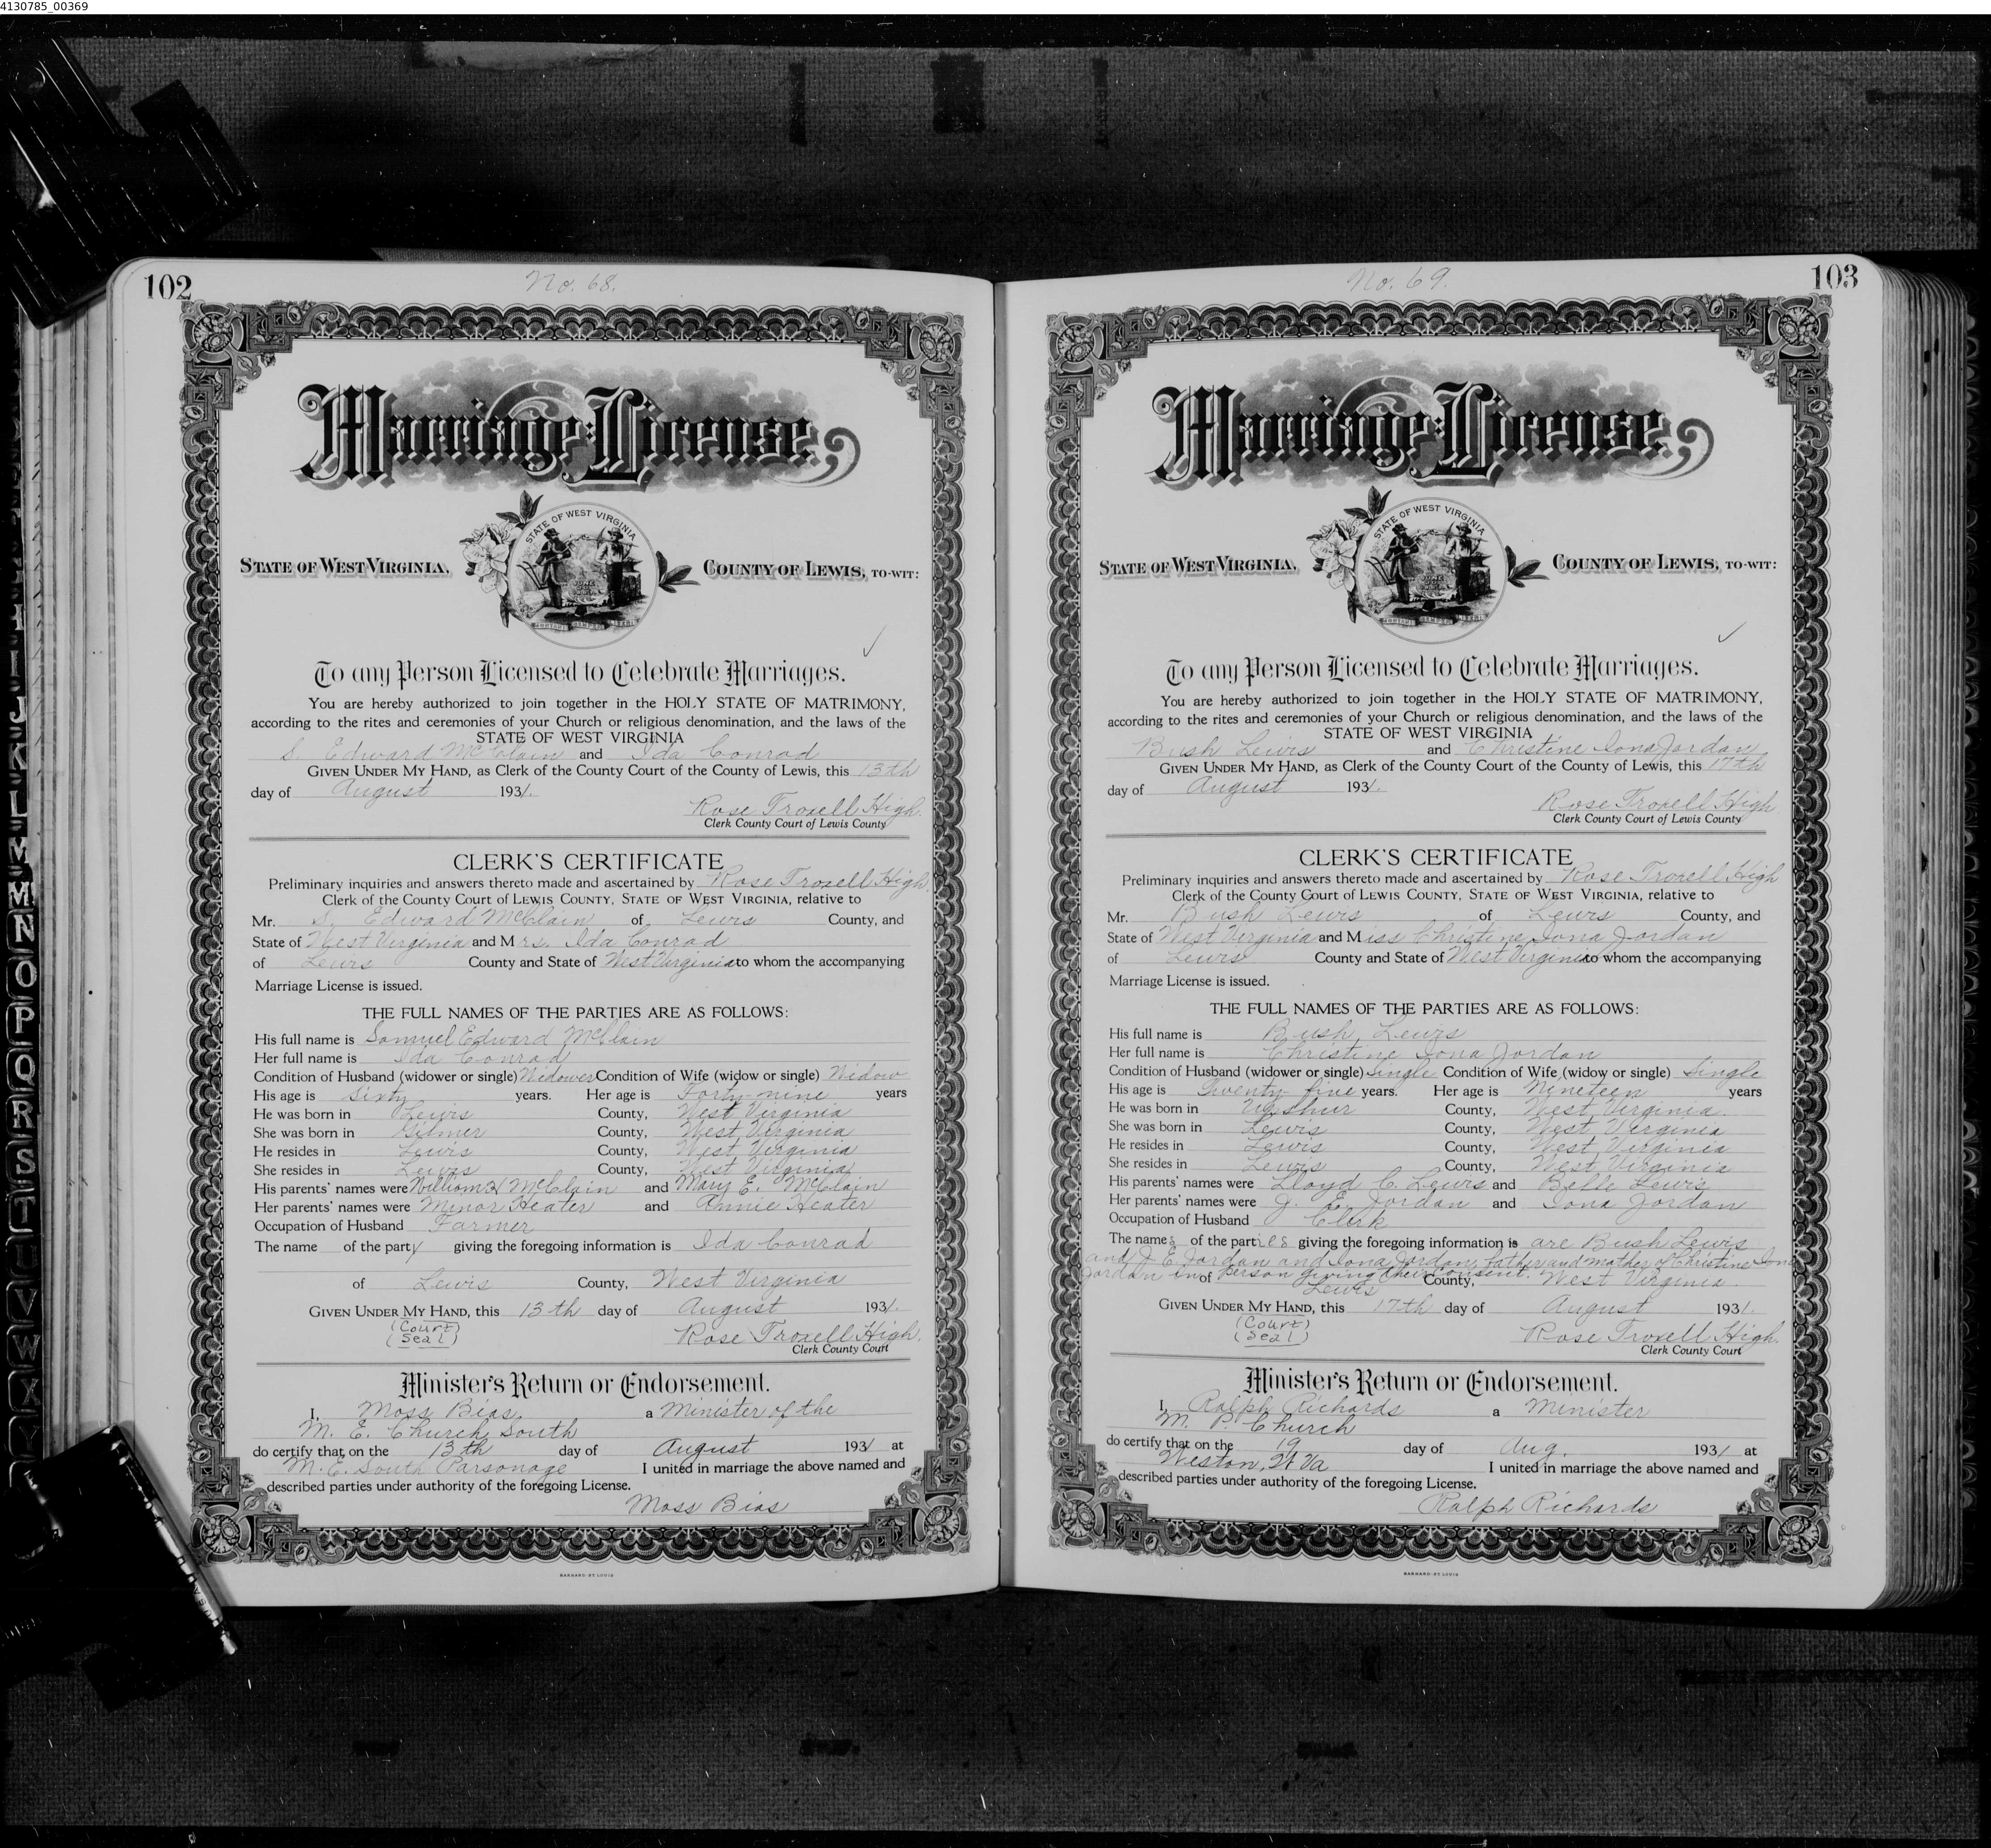 4130785_00369
102
No. 68.
Marriage License
STATE OF WEST VIRGINIA
STATE OF WEST VIRGINIA, COUNTY OF LEWIS, TO-WIT:
To any Person Licensed to Celebrate Marriages.
You are hereby authorized to join together in the HOLY STATE OF MATRIMONY,
according to the rites and ceremonies of your Church or religious denomination, and the laws of the
STATE OF WEST VIRGINIA
S. Edward McClain and Ida Conrad
GIVEN UNDER MY HAND, as Clerk of the County Court of the County of Lewis, this 13th
day of August 1931.
Rose Troxell High.
Clerk County Court of Lewis County
CLERK'S CERTIFICATE
Preliminary inquiries and answers thereto made and ascertained by Rose Troxell High,
Clerk of the County Court of LEWIS COUNTY, STATE OF WEST VIRGINIA, relative to
Mr. S. Edward McClain of Lewis County, and
State of West Virginia and Mrs. Ida Conrad
of Lewis County and State of West Virginia to whom the accompanying
Marriage License is issued.
THE FULL NAMES OF THE PARTIES ARE AS FOLLOWS:
His full name is Samuel Edward McClain
Her full name is Ida Conrad
Condition of Husband (widower or single) Widower Condition of Wife (widow or single) Widow
His age is Sixty years. Her age is Forty-nine years
He was born in Lewis County, West Virginia
She was born in Gilmer County, West Virginia
He resides in Lewis County, West Virginia
She resides in Lewis County, West Virginia
His parents' names were William H McClain and Mary E. McClain
Her parents' names were Minor Heater and Annie Heater
Occupation of Husband Farmer
The name of the party giving the foregoing information is Ida Conrad
of Lewis County, West Virginia
GIVEN UNDER MY HAND, this 13th day of August 1931.
(Court)
(Seal)
Rose Troxell High.
Clerk County Court
Minister's Return or Endorsement.
I, Moss Bias a Minister of the
M. E. Church, South
do certify that on the 13th day of August 1931 at
M. E. South Parsonage I united in marriage the above named and
described parties under authority of the foregoing License.
Moss Bias
BARNARD-ST LOUIS
103
No. 69.
Marriage License
STATE OF WEST VIRGINIA
STATE OF WEST VIRGINIA, COUNTY OF LEWIS, TO-WIT:
To any Person Licensed to Celebrate Marriages.
You are hereby authorized to join together in the HOLY STATE OF MATRIMONY,
according to the rites and ceremonies of your Church or religious denomination, and the laws of the
STATE OF WEST VIRGINIA
Bush Lewis and Christine Iona Jordan
GIVEN UNDER MY HAND, as Clerk of the County Court of the County of Lewis, this 17th
day of August 1931.
Rose Troxell High.
Clerk County Court of Lewis County
CLERK'S CERTIFICATE
Preliminary inquiries and answers thereto made and ascertained by Rose Troxell High
Clerk of the County Court of LEWIS COUNTY, STATE OF WEST VIRGINIA, relative to
Mr. Bush Lewis of Lewis County, and
State of West Virginia and Miss Christine Iona Jordan
of Lewis County and State of West Virginia to whom the accompanying
Marriage License is issued.
THE FULL NAMES OF THE PARTIES ARE AS FOLLOWS:
His full name is Bush Lewis
Her full name is Christine Iona Jordan
Condition of Husband (widower or single) Single Condition of Wife (widow or single) Single
His age is Twenty-five years. Her age is Nineteen years
He was born in Upshur County, West Virginia.
She was born in Lewis County, West Virginia
He resides in Lewis County, West Virginia
She resides in Lewis County, West Virginia
His parents' names were Lloyd C. Lewis and Belle Lewis
Her parents' names were J. E. Jordan and Iona Jordan
Occupation of Husband Clerk
The names of the parties giving the foregoing information is are Bush Lewis
and J. E. Jordan and Iona Jordan, father and mother of Christine Iona
Jordan in person giving their consent.
of Lewis County, West Virginia.
GIVEN UNDER MY HAND, this 17th day of August 1931.
(Court)
(Seal)
Rose Troxell High.
Clerk County Court
Minister's Return or Endorsement.
I, Ralph Richards a Minister
M. P. Church
do certify that on the 19 day of Aug. 1931 at
Weston, W Va I united in marriage the above named and
described parties under authority of the foregoing License.
Ralph Richards
BARNARD-ST LOUIS
I
J
K
L
M
N
O
P
Q
R
S
T
U
V
W
X
Y